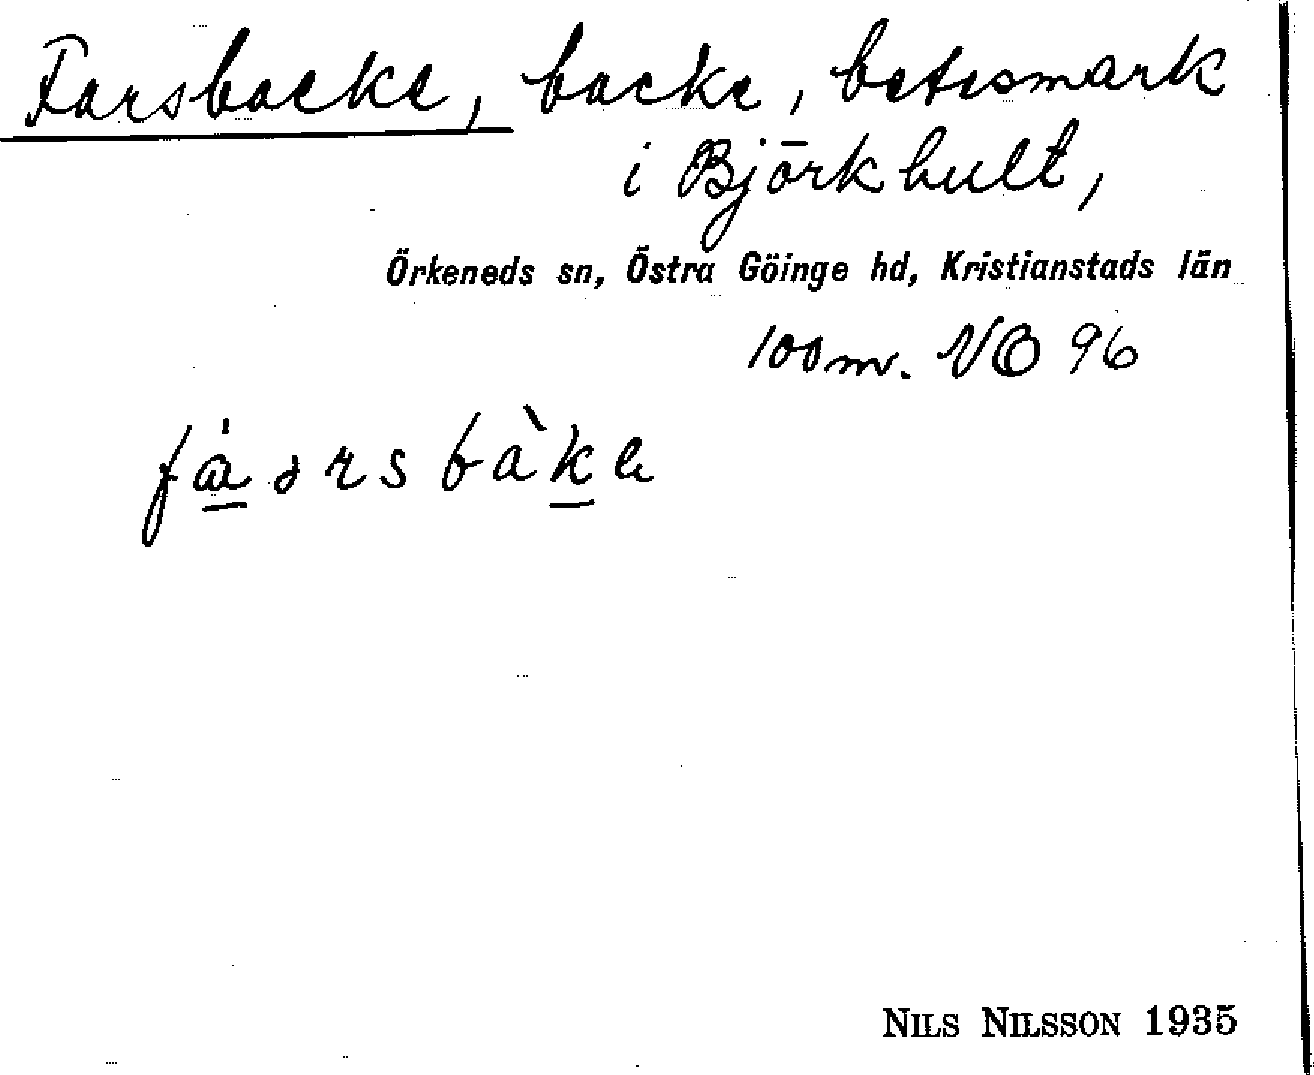 Farsbacke, backe, betesmark
i Björkhult,
Örkeneds sn, Östra Göinge hd, Kristianstads län
100 m. VO 96
NILS NILSSON 1935